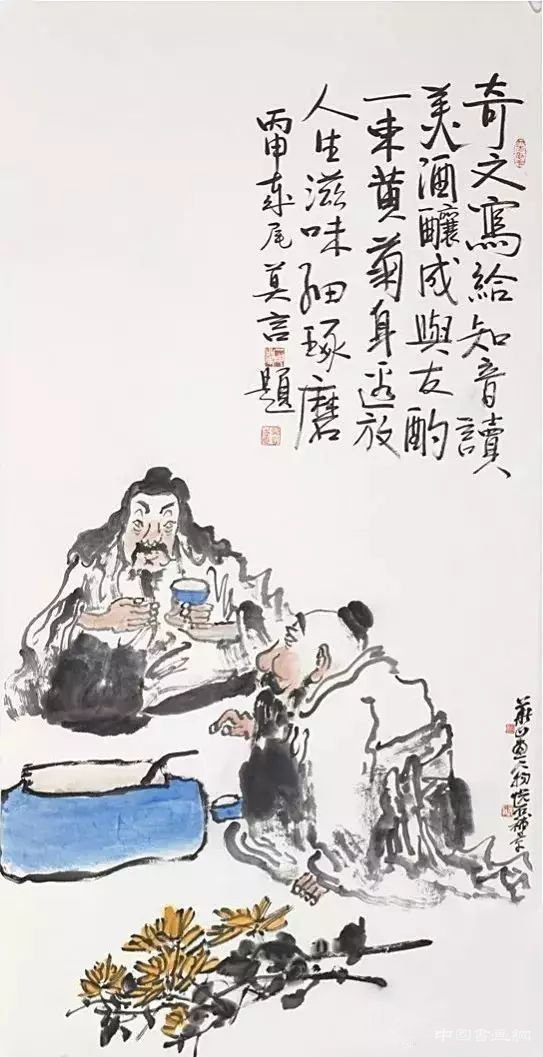 奇文寫給知音讀
美酒釀成與友酌
一束黄菊身邊放
人生滋味細琢磨
丙申歲尾莫言題
畫人物 補景
中国書画網